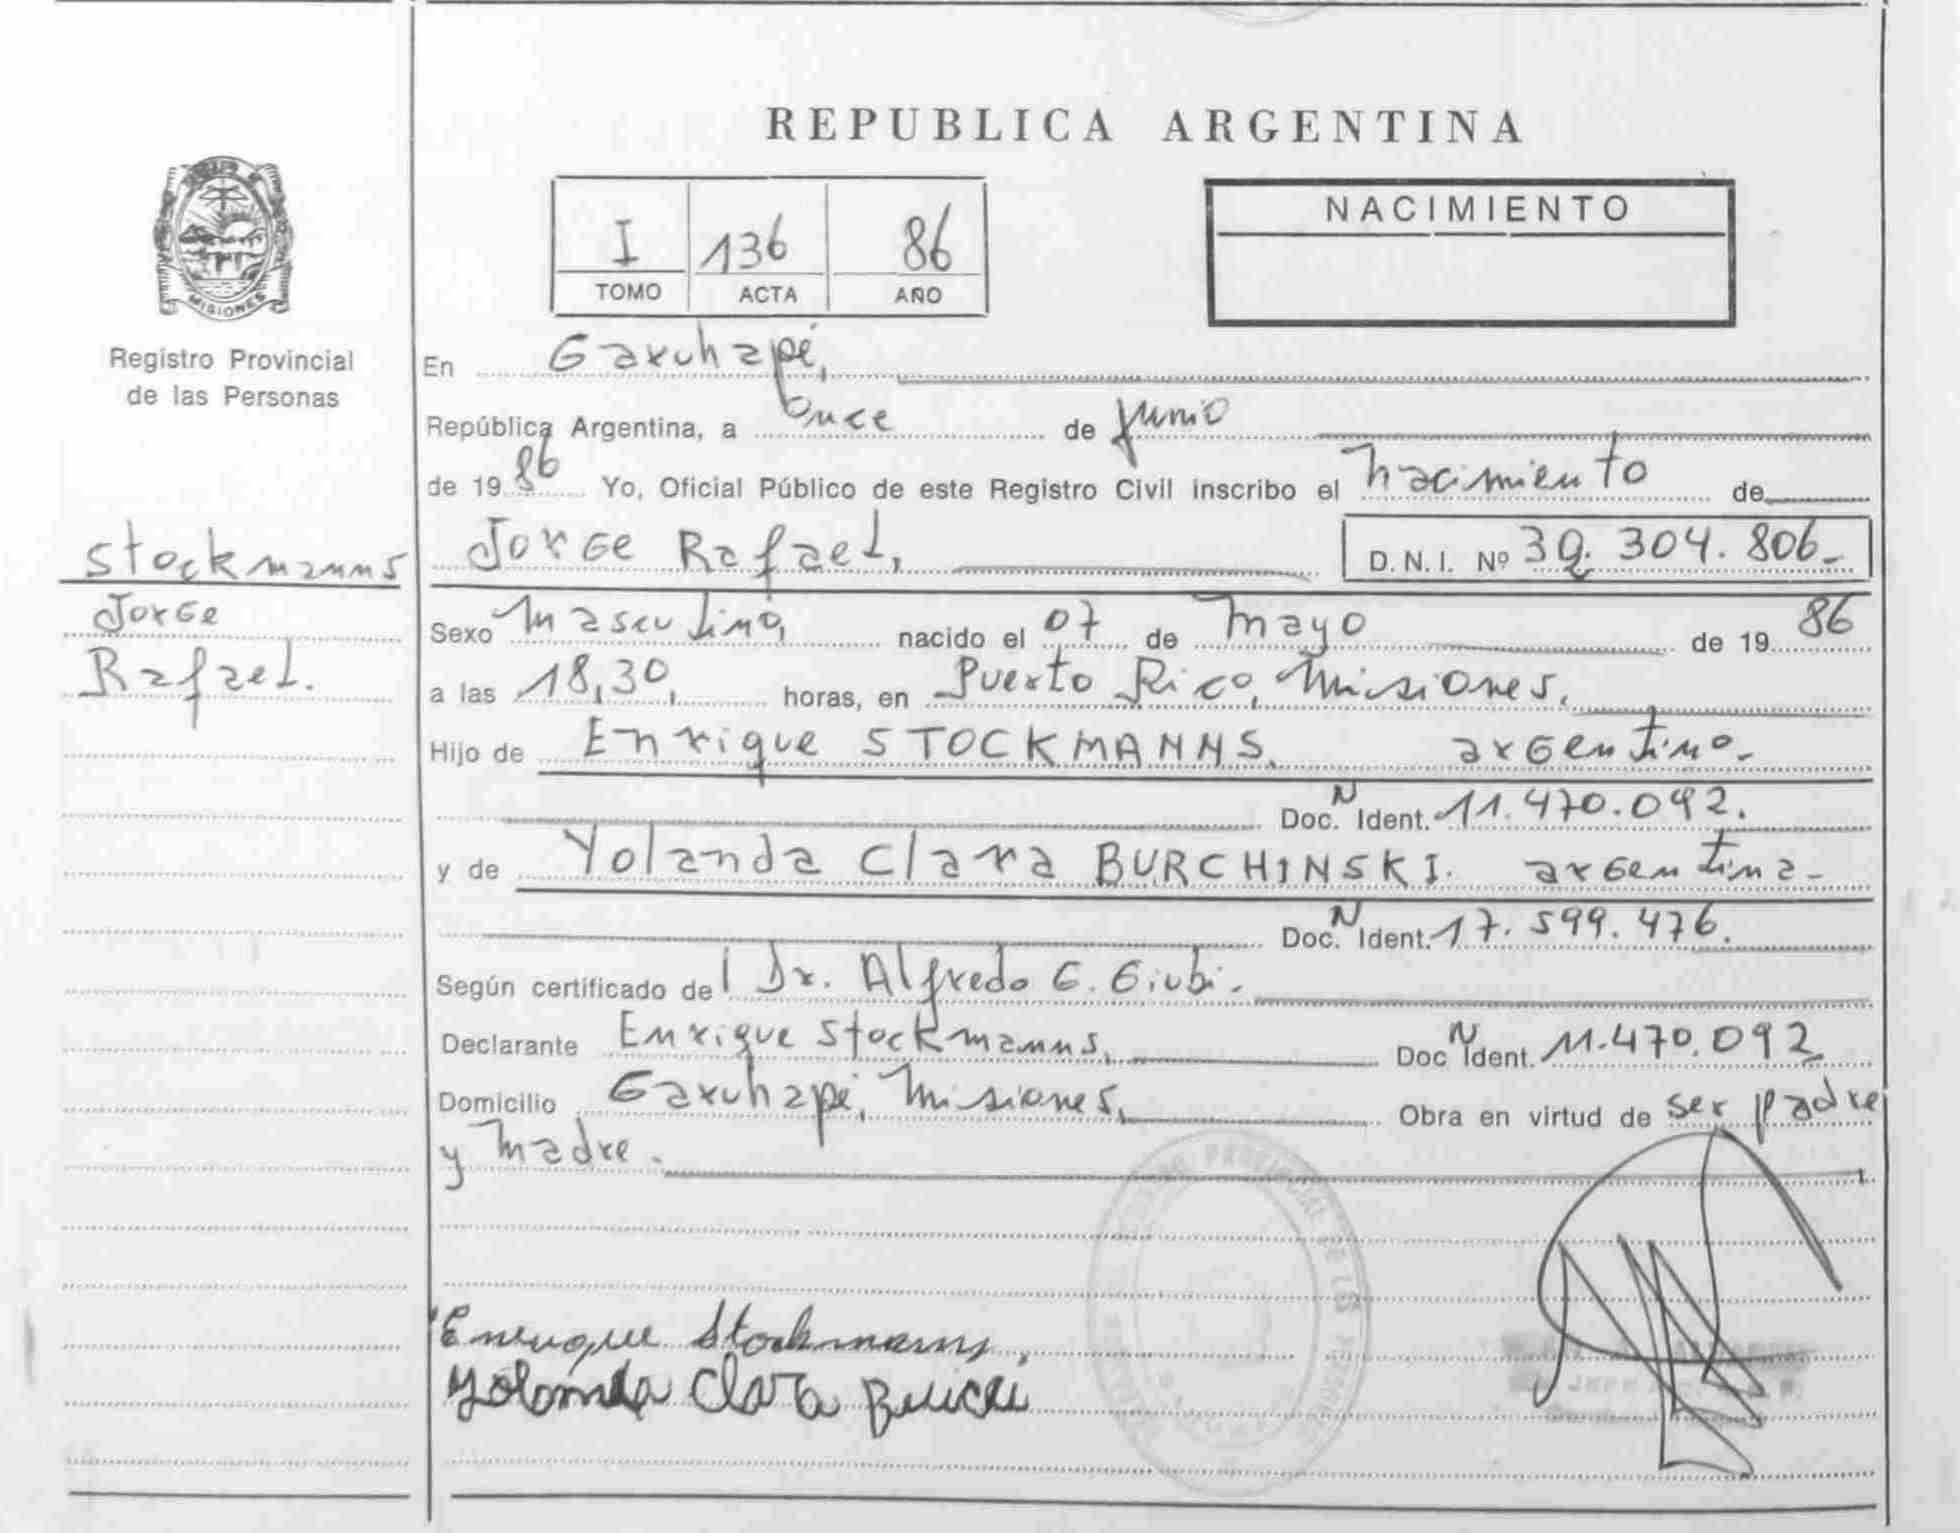 REPUBLICA ARGENTINA
NACIMIENTO
I 136 86
TOMO ACTA AÑO
MISIONES
Registro Provincial
de las Personas
En Garuhapé,
República Argentina, a once de Junio
de 19 86 Yo, Oficial Público de este Registro Civil inscribo el nacimiento de
Stockmanns
Jorge
Rafael.
Jorge Rafael, D.N.I. Nº 304.806-
Sexo Masculino, nacido el 07 de mayo de 19 86
a las 18,30, horas, en Puerto Rico, Misiones,
Hijo de Enrique STOCKMANNS. argentino-
Doc. N Ident. 11.470.092.
y de Yolanda Clara BURCHINSKI. argentina-
Doc. N Ident. 17.599.476.
Según certificado de Dr. Alfredo G. Giubi-
Declarante Enrique Stockmanns, Doc N Ident. 11.470.092
Domicilio Garuhapé, Misiones, Obra en virtud de ser padre
y madre.
PROVINCIAL DE LAS
Enrique Stockmanns,
Yolanda Clara